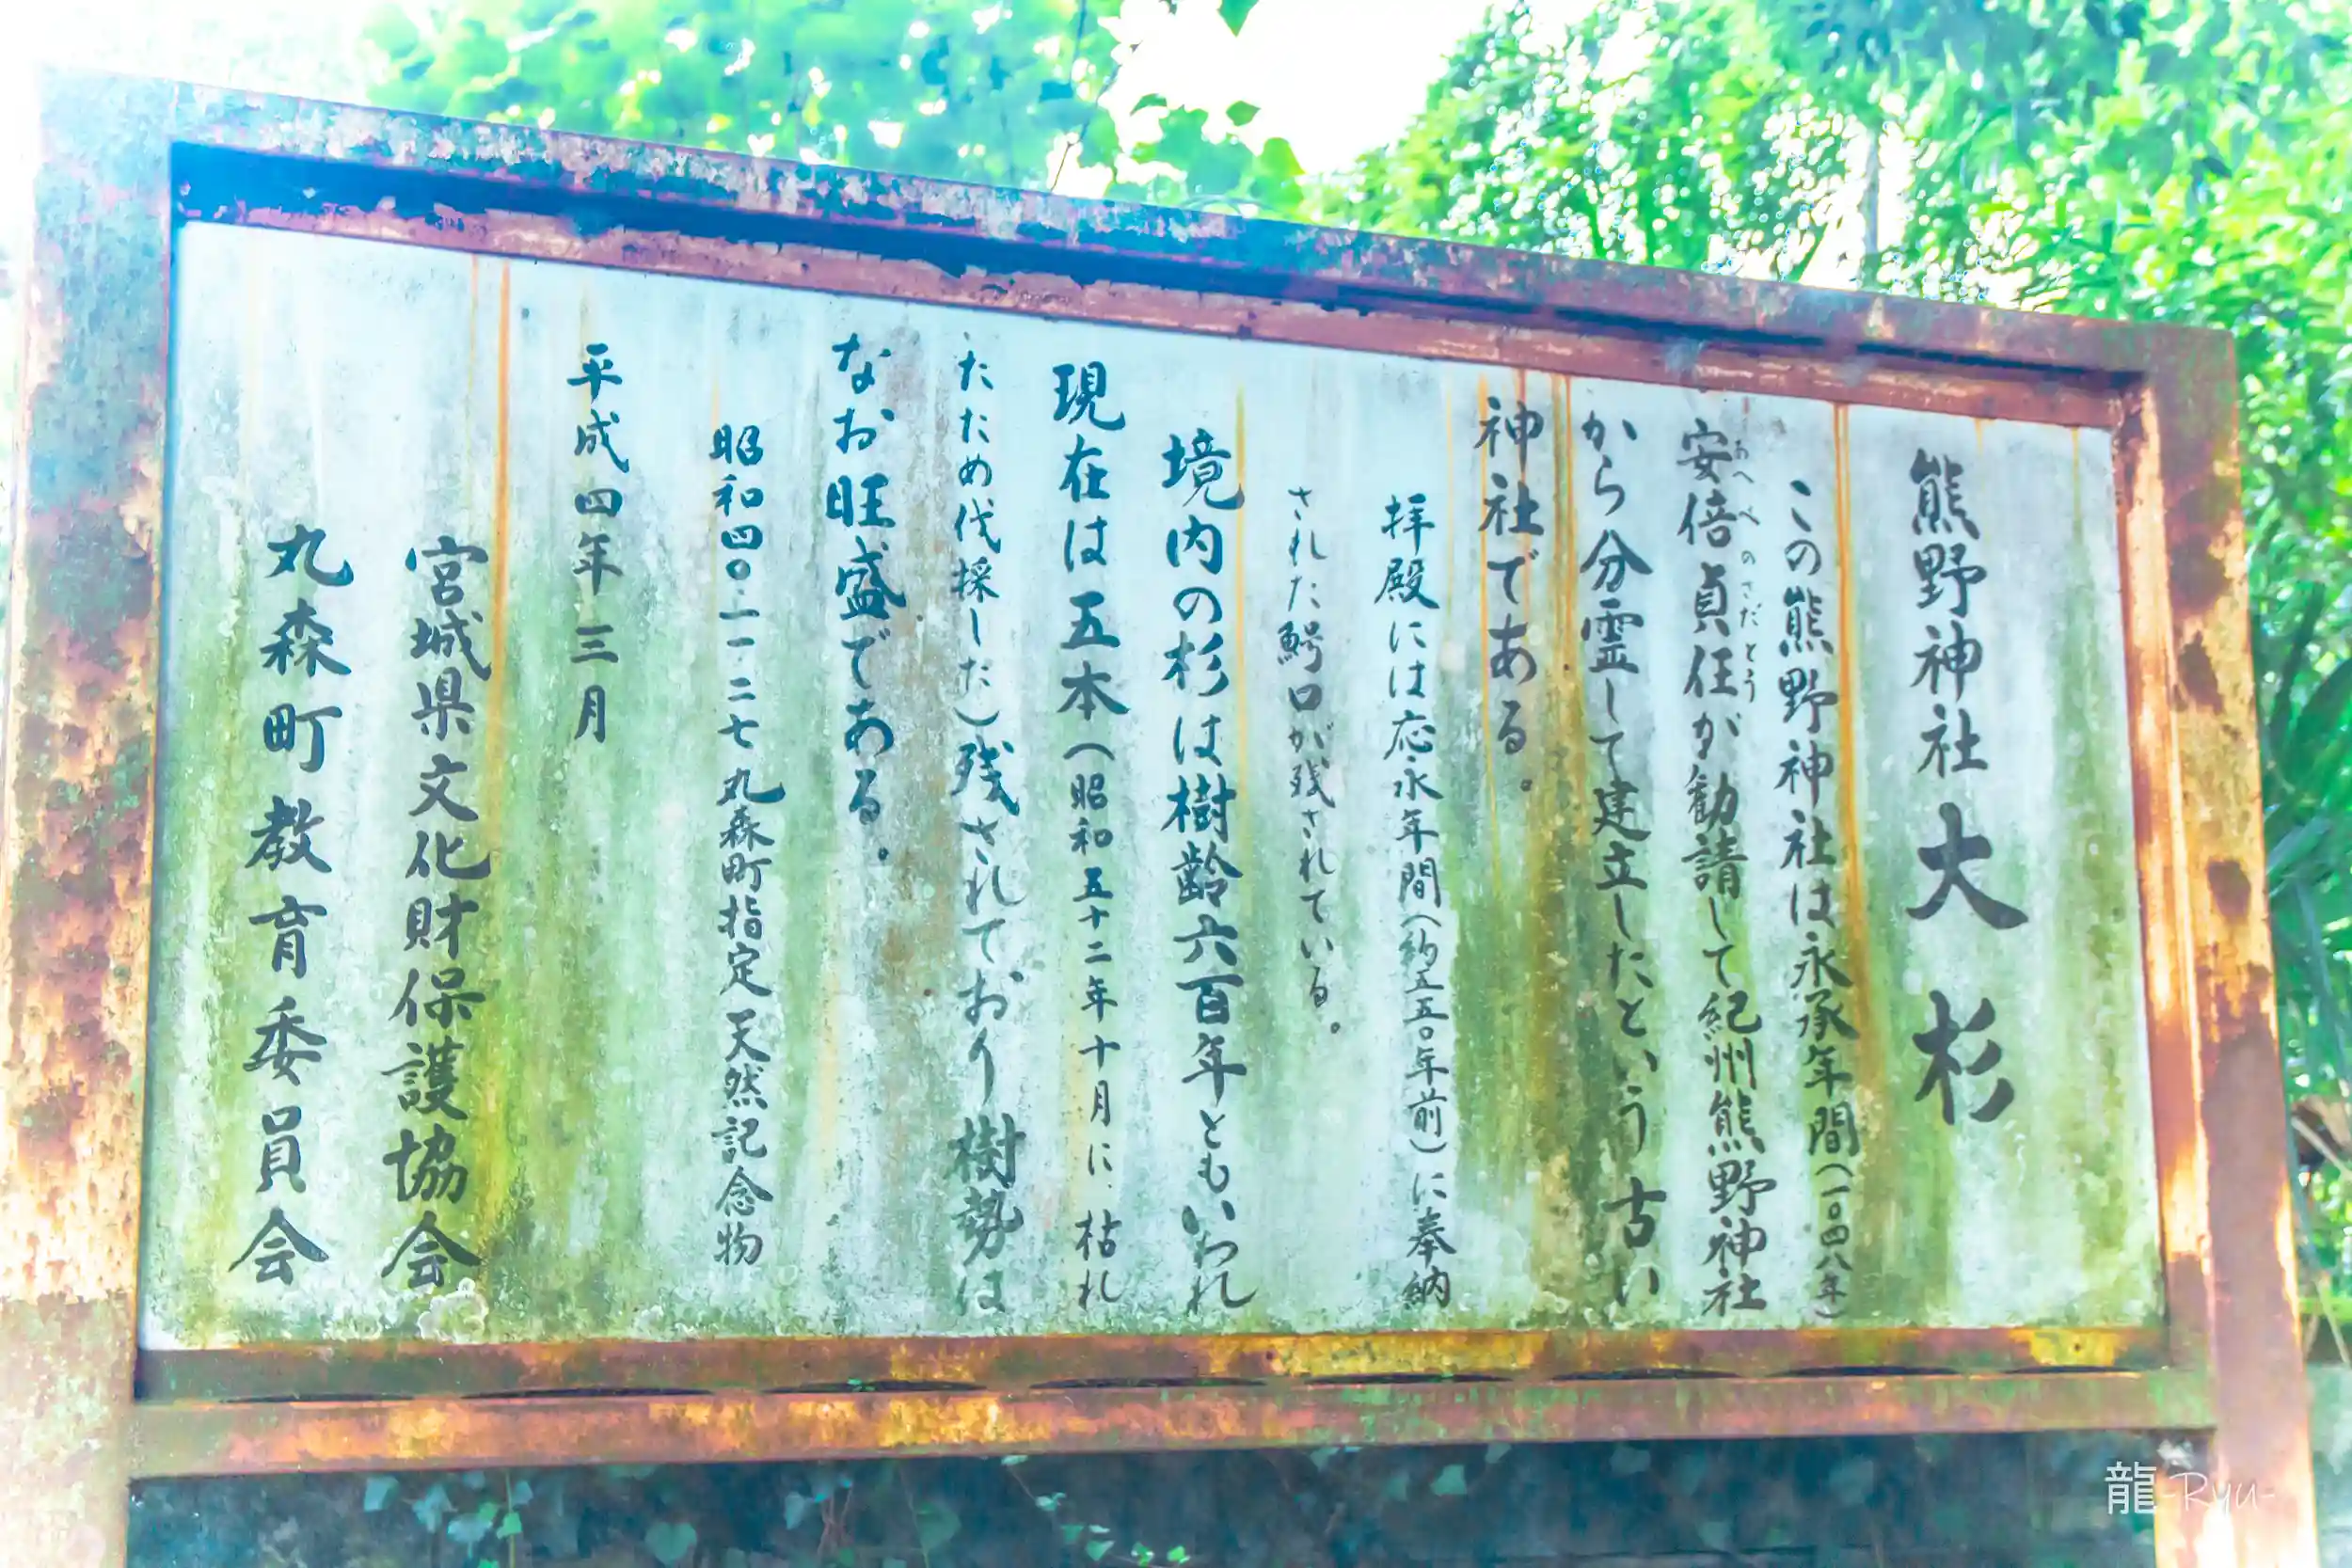 熊野神社大杉
この熊野神社は永承年間(一〇四八年)
安倍貞任が勧請して紀州熊野神社
あべのさだとう
から分霊して建立したという古い
神社である。
拝殿には応永年間(約五五〇年前)に奉納
された鰐口が残されている。
境内の杉は樹齢六百年ともいわれ
現在は五本(昭和五十二年十月に、枯れ
たため伐採した)残されており樹勢は
なお旺盛である。
昭和四〇・一一・二七 丸森町指定 天然記念物
平成四年三月
宮城県文化財保護協会
丸森町教育委員会
龍-Ryu-